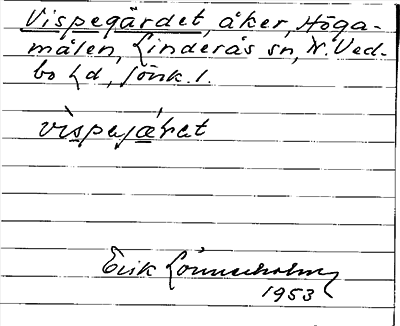 Vispegärdet, åker, Höga-
målen, Linderås sn, N. Ved-
bo hd, Jönk. l.
vìspejæ̀ṛət
Erik Lönnerholm
1953